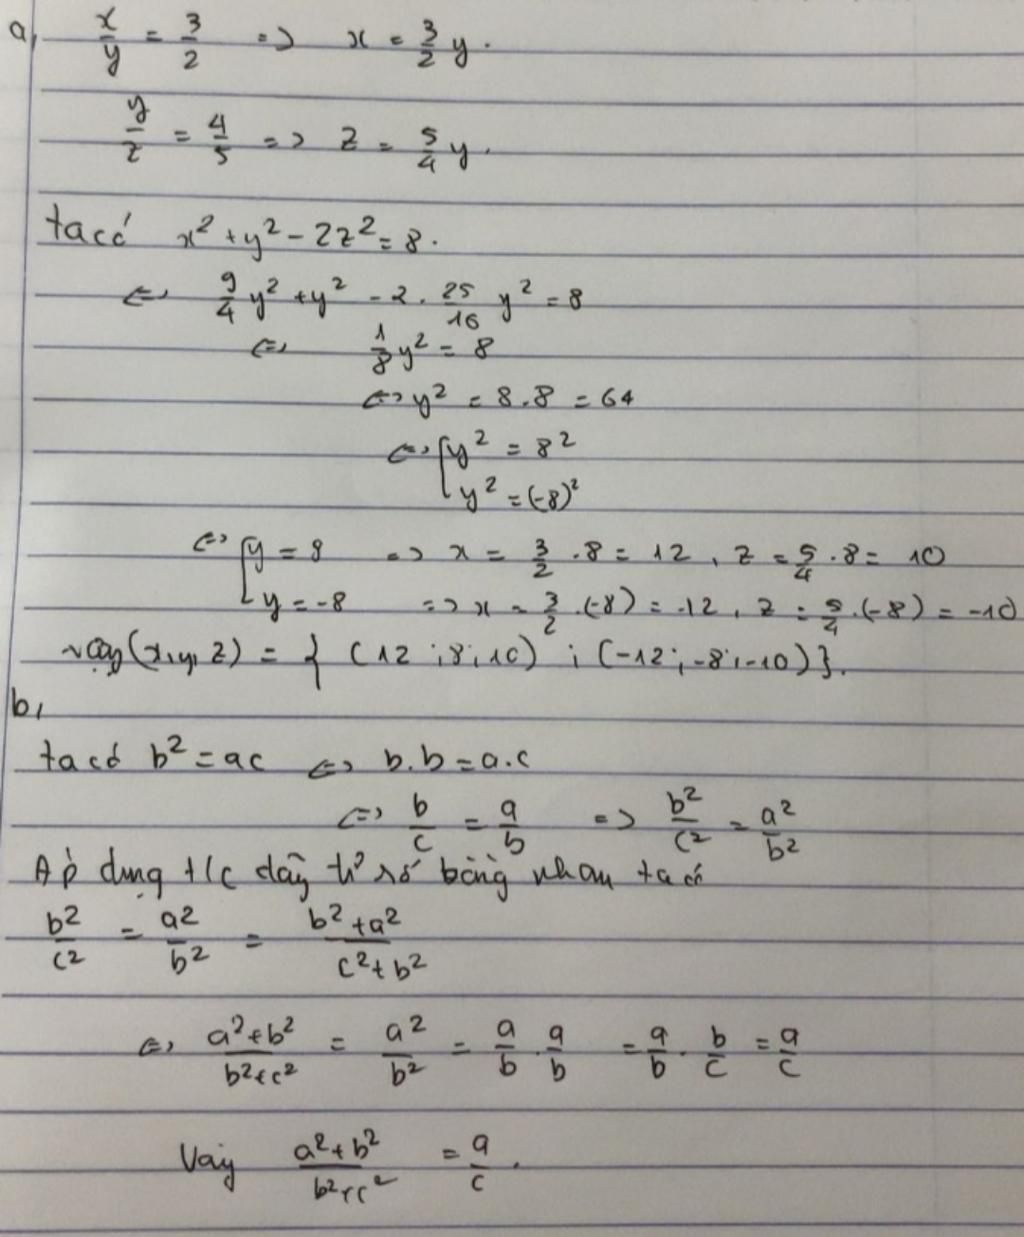 a, x/y = 3/2 => x = 3/2 y.
y/z = 4/5 => z = 5/4 y.
ta có x² + y² - 2z² = 8.
<=> 9/4 y² + y² - 2. 25/16 y² = 8
<=> 1/8 y² = 8
<=> y² = 8.8 = 64
<=> [ y² = 8²
y² = (-8)²
<=> [ y = 8 => x = 3/2 .8 = 12, z = 5/4 .8 = 10
y = -8 => x = 3/2 .(-8) = -12, z = 5/4 .(-8) = -10
vậy (x,y,z) = { (12;8;10) ; (-12;-8;-10)}.
b,
ta có b² = ac <=> b.b = a.c
<=> b/c = a/b => b²/c² = a²/b²
Áp dụng t/c dãy tỉ số bằng nhau ta có
b²/c² = a²/b² = (b² + a²)/(c² + b²)
<=> (a² + b²)/(b² + c²) = a²/b² = a/b . a/b = a/b . b/c = a/c
Vậy (a² + b²)/(b² + c²) = a/c.